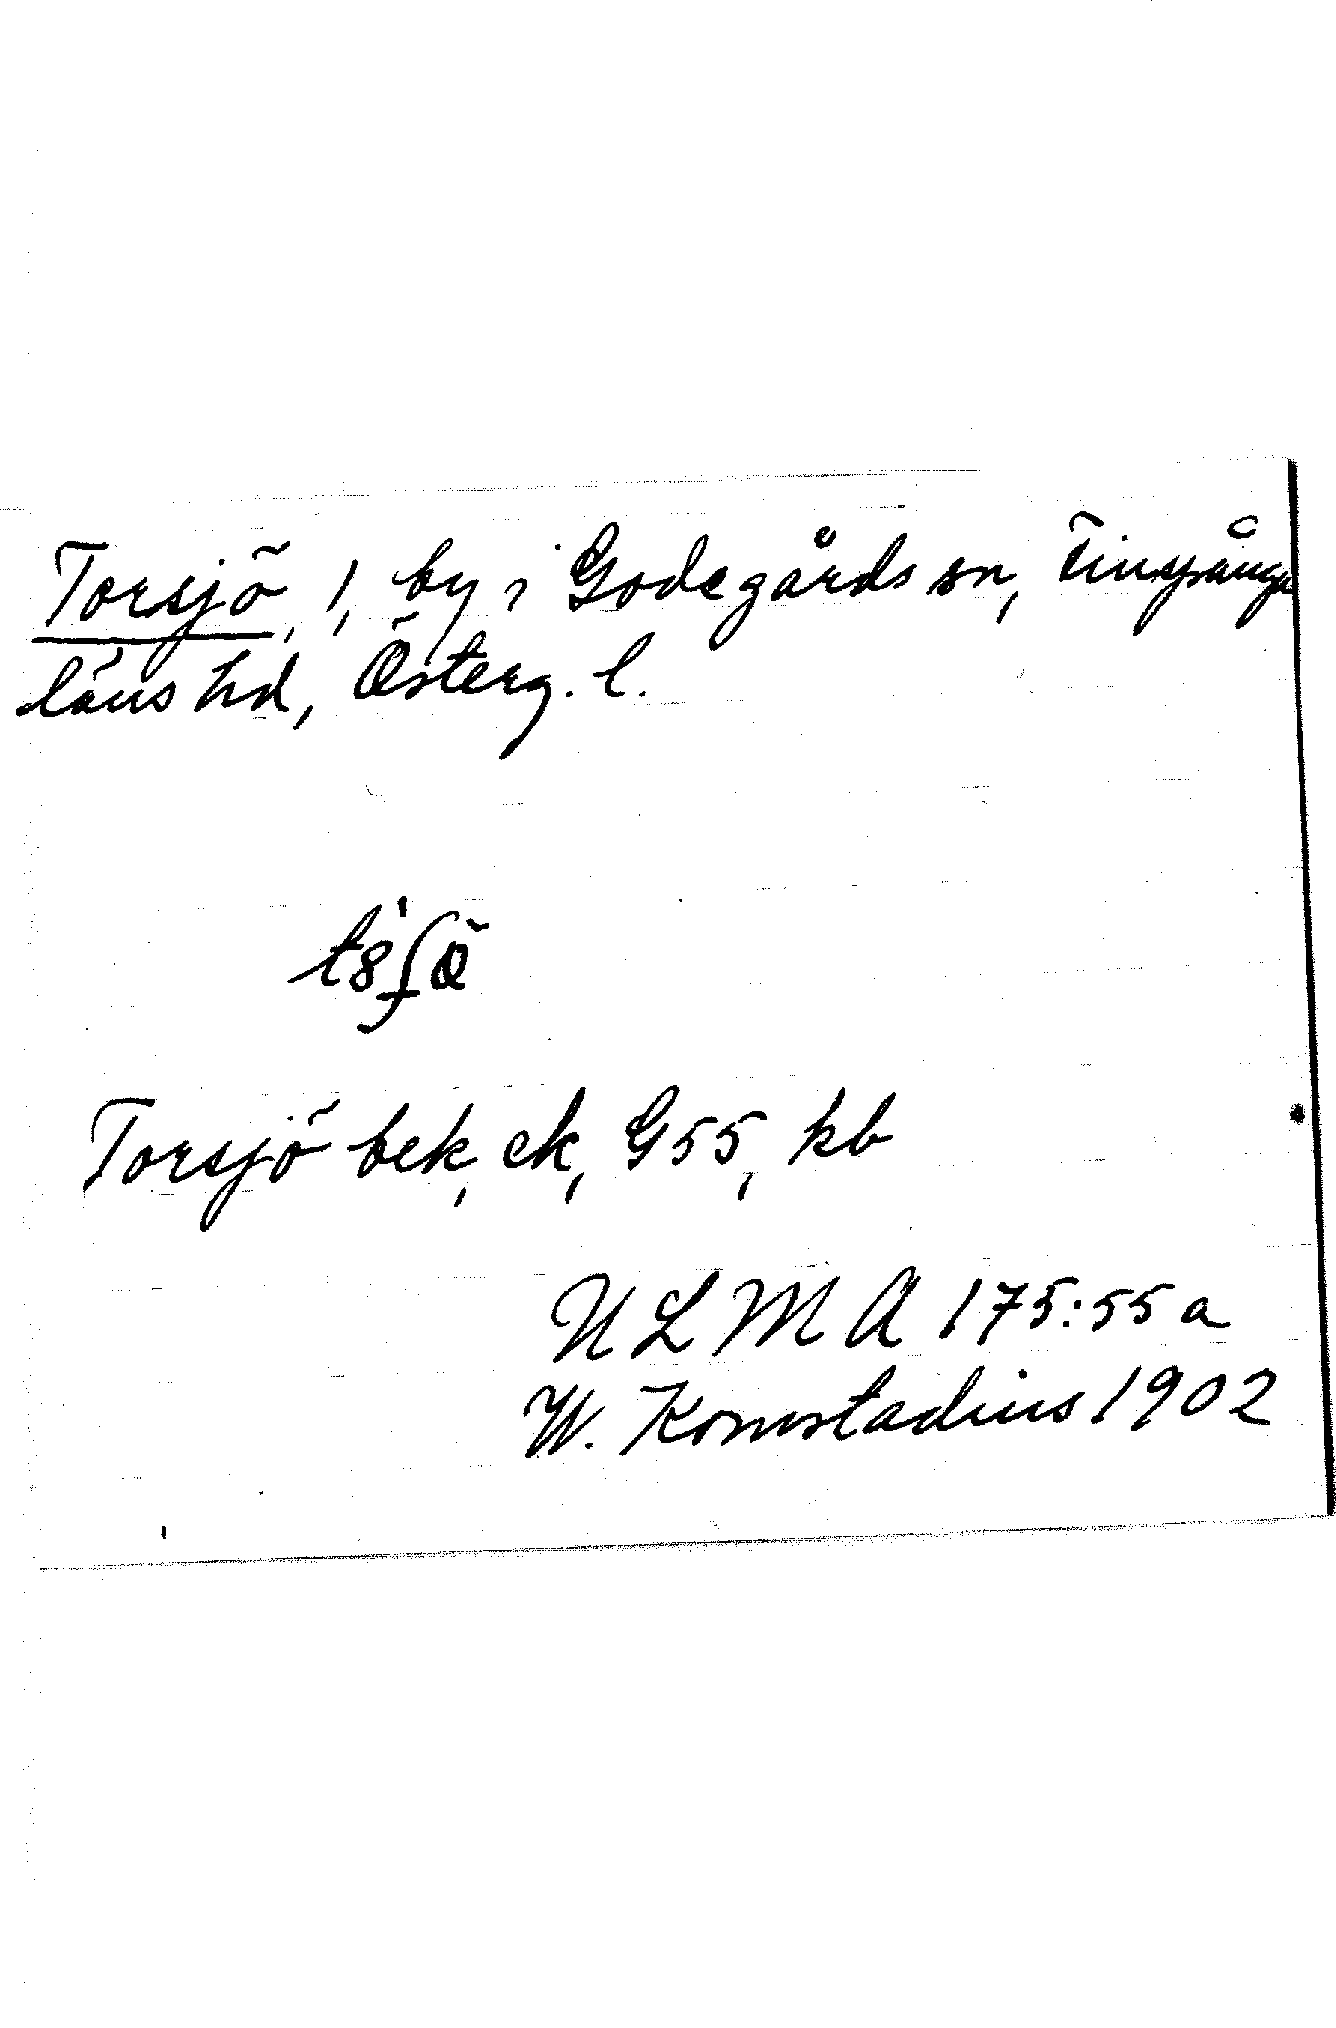 Torsjö, 1, by i Godegårds sn, Finspånga
läns hd, Österg. l.
Torsjö bek, ek, G55, kb
ULMA 175:55a
W. Kornstadius 1902